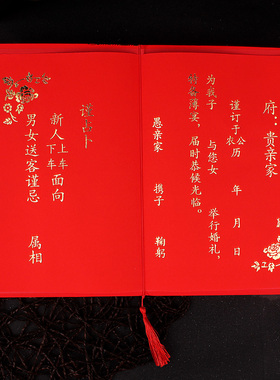 府：贵亲家
谨订于农公历 年 月 日
为我子 与您女 举行婚礼，
备薄宴，届时恭候光临。
愚亲家 携子 鞠躬
谨占卜
新人上车下车面向
男女送客谨忌 属相